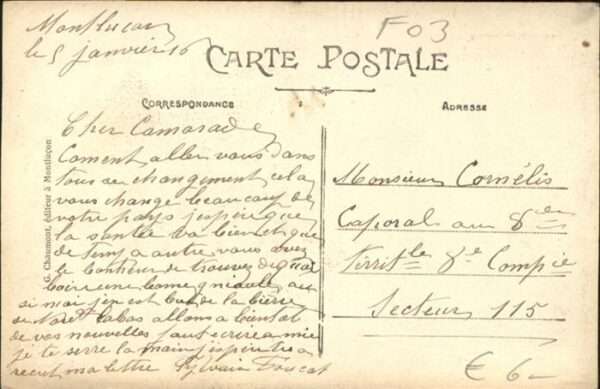 Montluçon
le 5 janvier 16
F03
CARTE POSTALE
CORRESPONDANCE
ADRESSE
G. Chaumont, éditeur à Montluçon
Cher Camarade
Coment aller vous dans
tous ce changement cela
vous change beaucoup de
votre pays j'espere que
la santée va bien et que
de temp a autre vous avez
le bonheur de trouvez
boire une bone au
si moi j'en ai but de la bierre
du labas allons a bientot
de vos nouvelles faut ecrire a mie
je te serre la main j'espere
recut ma lettre Sylvain
Monsieur Cornélis
Caporal au 8ème
Territle 8e Compie
Secteur 115
€ 6-